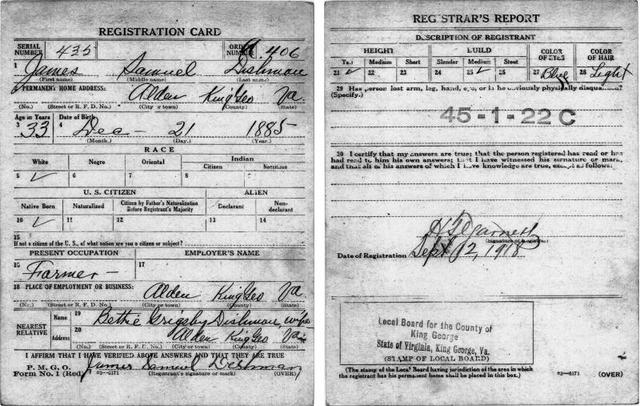 REGISTRATION CARD
SERIAL NUMBER 435 ORDER NUMBER 406
1 James Samuel Dishman
(First name) (Middle name) (Last name)
2 PERMANENT HOME ADDRESS:
Alden King Geo Va.
(No.) (Street or R. F. D. No.) (City or town) (County) (State)
Age in Years Date of Birth
3 33 4 Dec - 21 1885
(Month.) (Day.) (Year.)
RACE
White Negro Oriental Indian
Citizen Noncitizen
5 ✓ 6 7 8 9
U. S. CITIZEN ALIEN
Native Born Naturalized Citizen by Father's Naturalization Before Registrant's Majority Declarant Non-declarant
10 ✓ 11 12 13 14
15
If not a citizen of the U. S., of what nation are you a citizen or subject?
PRESENT OCCUPATION EMPLOYER'S NAME
16 Farmer - 17
18 PLACE OF EMPLOYMENT OR BUSINESS:
Alden King Geo Va
(No.) (Street or R. F. D. No.) (City or town) (County) (State)
NEAREST RELATIVE
Name 19 Bettie Grigsby Dishman wife
Address 20 Alden King Geo Va
(No.) (Street or R. F. D. No.) (City or town) (County) (State)
I AFFIRM THAT I HAVE VERIFIED ABOVE ANSWERS AND THAT THEY ARE TRUE
P. M. G. O.
Form No. 1 (Red) James Samuel Dishman
(Registrant's signature or mark) (OVER)
REGISTRAR'S REPORT
DESCRIPTION OF REGISTRANT
HEIGHT BUILD COLOR OF EYES COLOR OF HAIR
Tall Medium Short Slender Medium Stout
21 ✓ 22 23 24 25 ✓ 26 27 Blue 28 Light
29 Has person lost arm, leg, hand, eye, or is he obviously physically disqualified?
(Specify.)
45-1-22 C
30 I certify that my answers are true; that the person registered has read or has had read to him his own answers; that I have witnessed his signature or mark, and that all of his answers of which I have knowledge are true, except as follows:
(Signature of Registrar)
Date of Registration Sept 12, 1918
Local Board for the County of
King George
State of Virginia, King George, Va.
(STAMP OF LOCAL BOARD)
(The stamp of the Local Board having jurisdiction of the area in which
the registrant has his permanent home shall be placed in this box.)
(OVER)